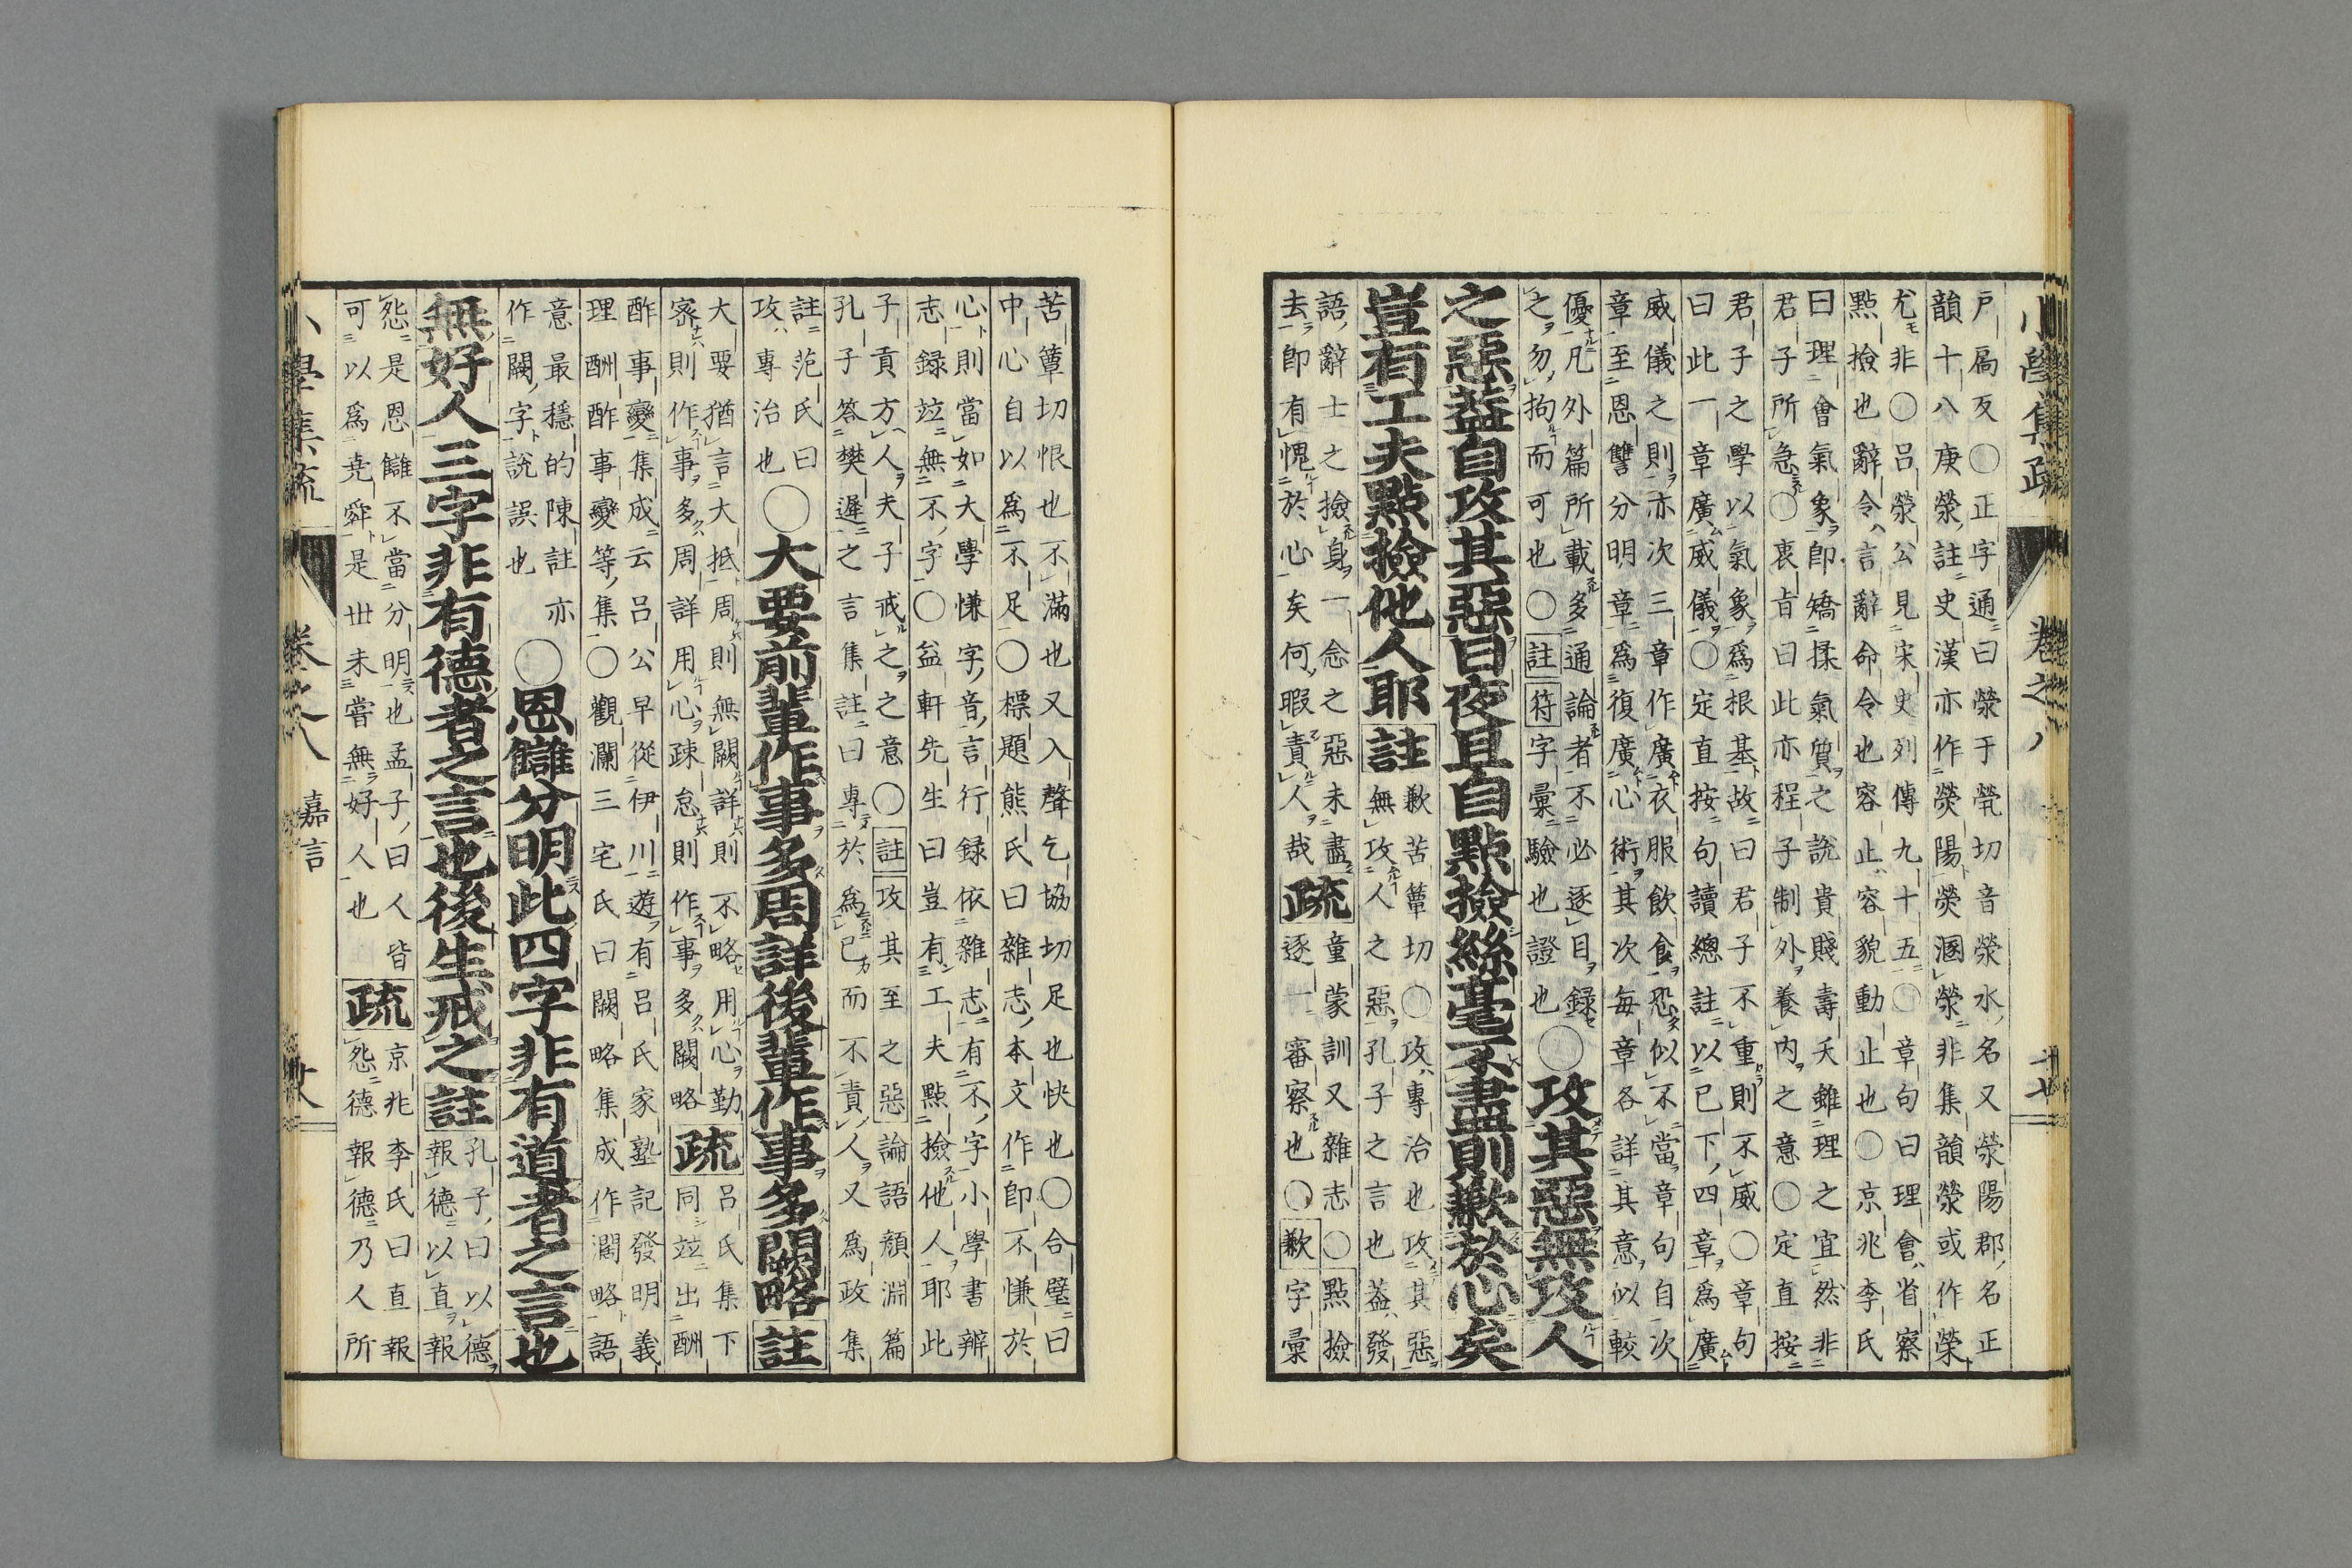 戸扃反〇正字通曰榮于煢切音滎水名又滎陽郡名正
韻十八庚滎註史漢亦作熒陽熒溷滎非集韻滎或作榮
尤非〇呂滎公見宋史列傳九十五〇章句曰理會省察
點撿也辭令言辭命令也容止容貌動止也〇京兆李氏
曰理會氣象卽矯揉氣質之說貴賤壽夭雖理之宜然非
君子所急〇衷旨曰此亦程子制外養內之意〇定直按
君子之學以氣象爲根基故曰君子不重則不威〇章句
曰此一章廣威儀〇定直按句讀總註以已下四章爲廣
威儀之則亦次三章作廣衣服飲食恐似不當章句自次
章至恩讐分明章爲復廣心術其次每章各詳其意似較
優凡外篇所載多通論者不必逐目録
之勿拘而可也〇註符字彙驗也證也〇攻其惡無攻人
之惡葢自攻其惡日夜且自點撿絲毫不盡則歉於心矣
豈有工夫點撿他人耶註歉苦簟切〇攻專治也攻其惡
無攻人之惡孔子之言也葢發
語辭士之撿身一念之惡未盡
去卽有愧於心矣何暇責人哉疏童蒙訓又雜志〇點撿
逐一審察也〇歉字彙
小學集疏 卷之八
苦簟切恨也不滿也又入聲乞協切足也快也〇合璧曰
中心自以爲不足〇標題熊氏曰雜志本文作卽不慊於
心則當如大學慊字音言行録依雜志有不字小學書辨
志録竝無不字〇益軒先生曰豈有工夫點撿他人耶此
子貢方人夫子戒之之意〇註攻其至之惡論語顔淵篇
孔子答樊遲之言集註曰專於爲己而不責人又爲政集
註范氏曰
攻專治也〇大要前輩作事多周詳後輩作事多闕略註
大要猶言大抵周則無闕詳則不略用心勤
密則作事多周詳用心疎怠則作事多闕略疏呂氏集下
同竝出酬
酢事變集成云呂公早從伊川遊有呂氏家塾記發明義
理酬酢事變等集〇觀瀾三宅氏曰闕略集成作濶略語
意最穩的陳註亦
作闕字說誤也〇恩讎分明此四字非有道者之言也
無好人三字非有德者之言也後生戒之註孔子曰以德
報德以直報
怨是恩讎不當分明也孟子曰人皆
可以爲堯舜是世未嘗無好人也疏京兆李氏曰直報
怨德報德乃人所
小學集疏 卷之八 嘉言